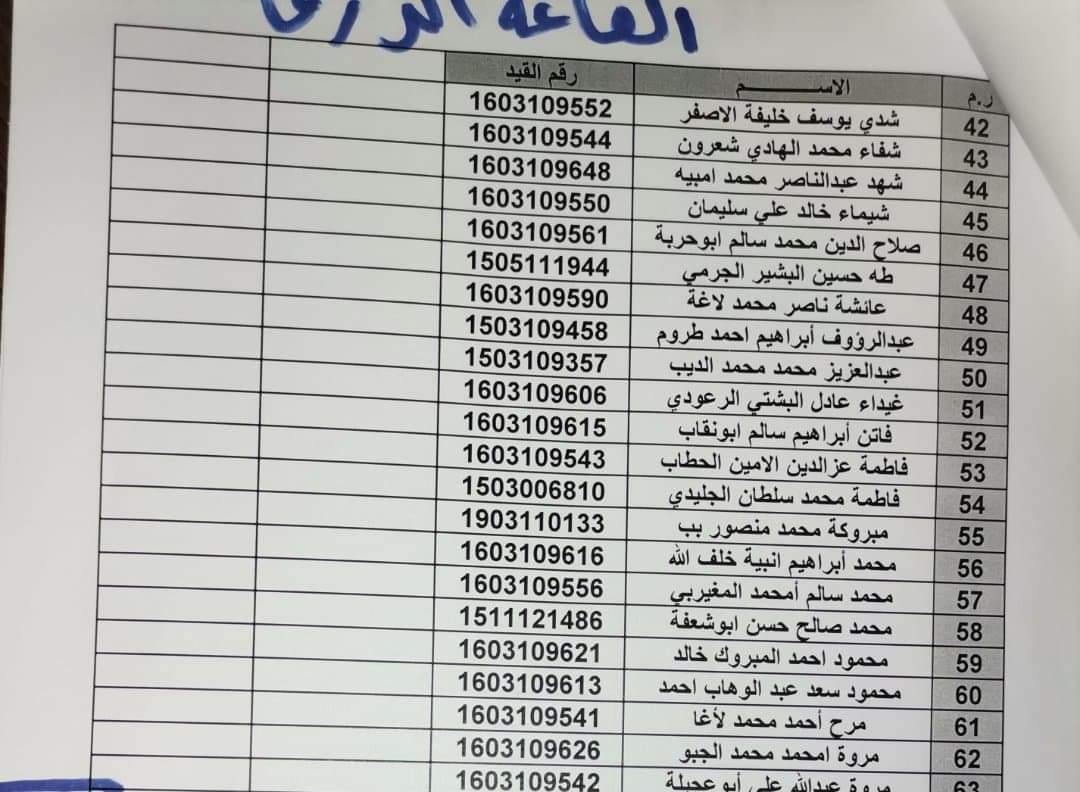 القاعة
ر.م الاســـــم رقم القيد
42 شدي يوسف خليفة الاصفر 1603109552
43 شفاء محمد الهادي شعرون 1603109544
44 شهد عبدالناصر محمد امبيه 1603109648
45 شيماء خالد علي سليمان 1603109550
46 صلاح الدين محمد سالم ابوحربة 1603109561
47 طه حسين البشير الجرمي 1505111944
48 عائشة ناصر محمد لاغة 1603109590
49 عبدالرؤوف أبراهيم احمد طروم 1503109458
50 عبدالعزيز محمد محمد الديب 1503109357
51 غيداء عادل البشتي الرعودي 1603109606
52 فاتن أبراهيم سالم ابونقاب 1603109615
53 فاطمة عزالدين الامين الحطاب 1603109543
54 فاطمة محمد سلطان الجليدي 1503006810
55 مبروكة محمد منصور بب 1903110133
56 محمد أبراهيم انبية خلف الله 1603109616
57 محمد سالم أمحمد المغيربي 1603109556
58 محمد صالح حسن ابوشعفة 1511121486
59 محمود احمد المبروك خالد 1603109621
60 محمود سعد عبد الوهاب احمد 1603109613
61 مرح أحمد محمد لأغا 1603109541
62 مروة امحمد محمد الجبو 1603109626
63 مروة عبدالله علي أبوعجيلة 1603109542